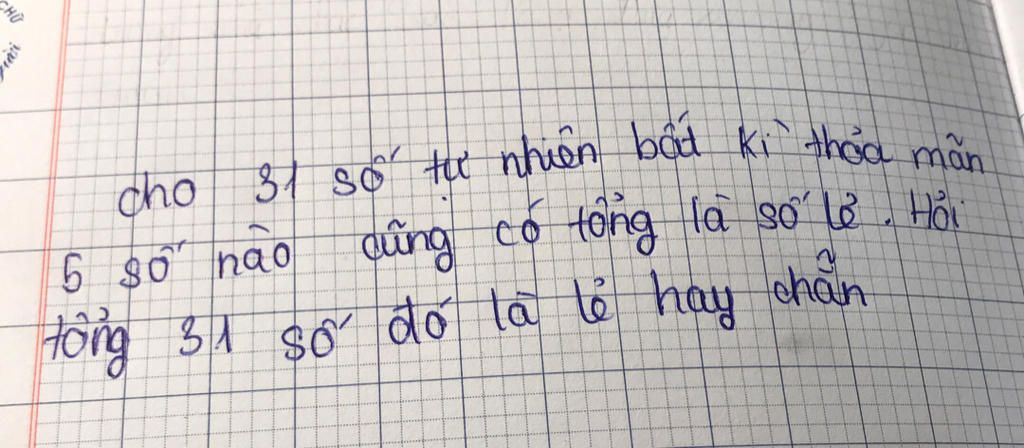 CHỮ
cho 31 số tự nhiên bất kì thỏa mãn
5 số nào cũng có tổng là số lẻ. Hỏi
tổng 31 số đó là lẻ hay chẵn